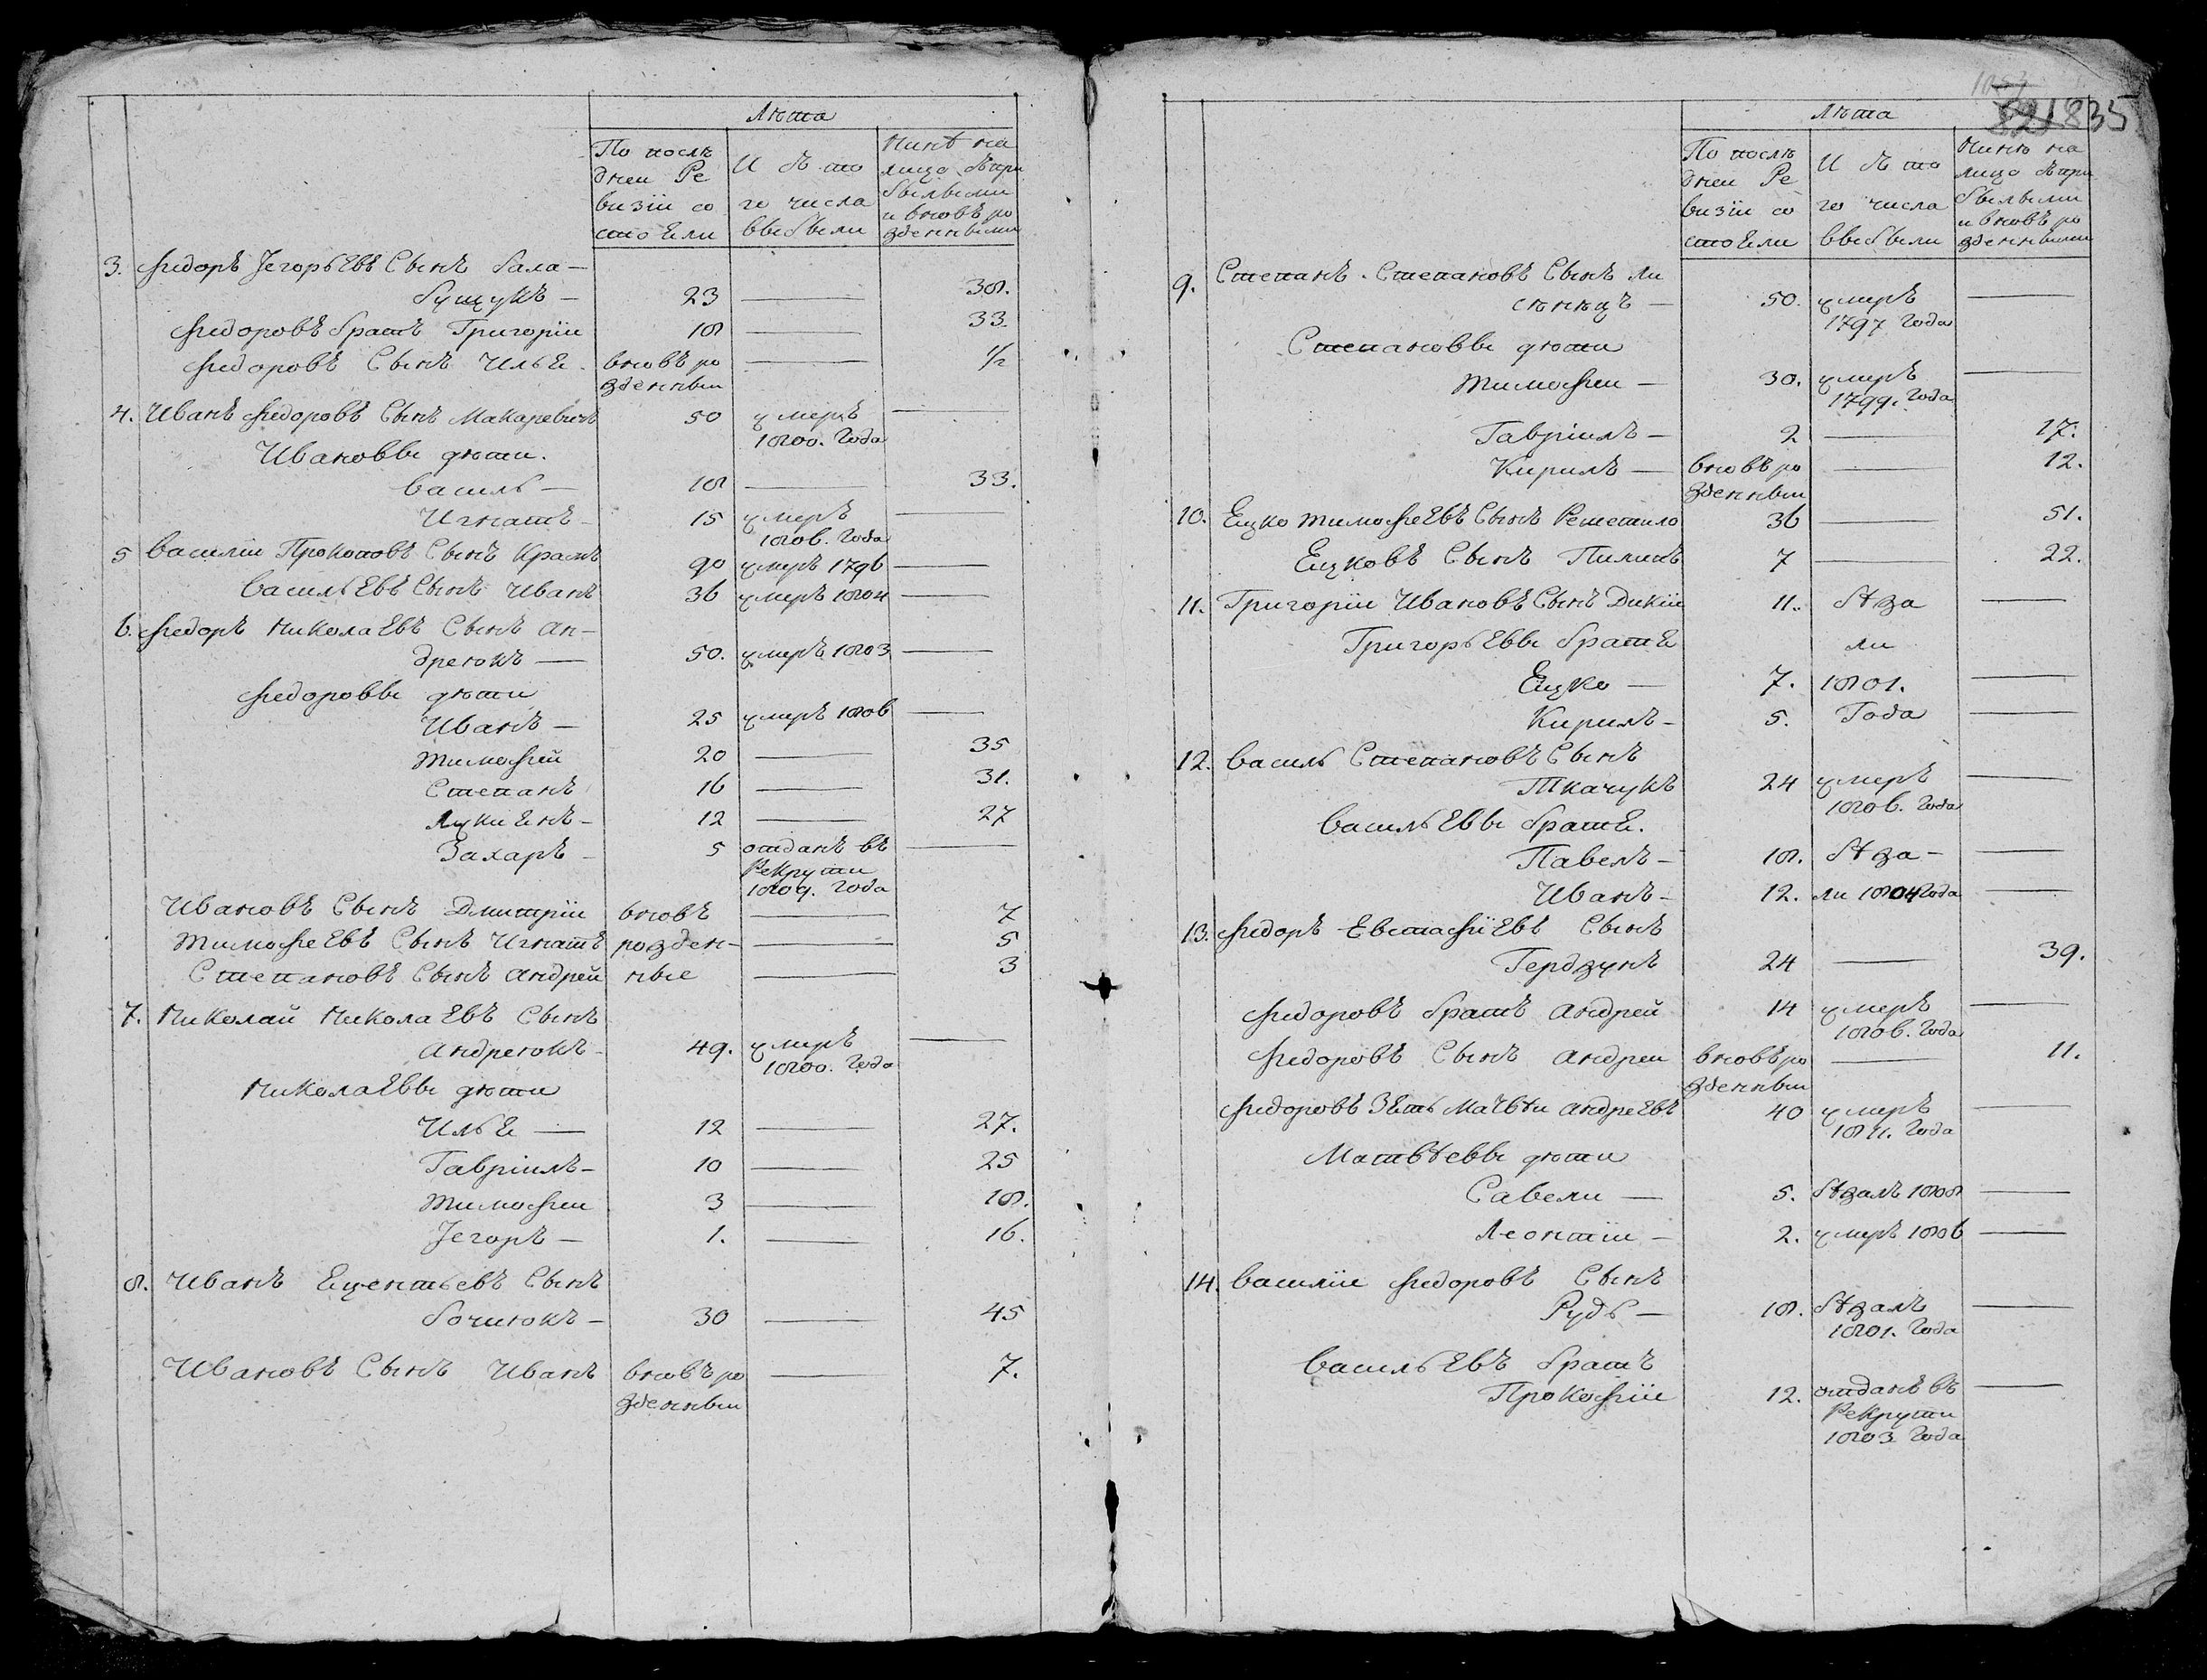 Лѣта
По послѣ
днеи Ре
визіи со
стоЕли
И съ то
го числа
выбыли
Нинѣ на
лицо съпри
былыми
и вновъ ро
зденными
3. Федоръ ІегорьЕвъ Сынъ бала-
бущукъ — 23 — 38.
Федоровъ братъ Григоріи 18 — 33.
Федоровъ Сынъ ИльЕ. вновъ ро — 1/2
зденныи
4. Иванъ Федоровъ Сынъ Макаревичъ 50 умеръ —
1800. Года
Ивановы дѣти.
василь — 18 — 33.
Игнатъ — 15 умеръ —
1806. Года
5 василіи Прокоповъ Сынъ Крамъ 90 умеръ 1796 —
васильЕвъ Сынъ Иванъ 36 умеръ 1804 —
6. Федоръ НиколаЕвъ Сынъ ан-
дреюкъ — 50. умеръ 1803 —
Федоровы дѣти
Иванъ — 25 умеръ 1806 —
тимофей 20 — 35
Степанъ 16 — 31.
ЛукиЕнъ — 12 — 27
Захаръ — 5 отданъ въ —
Рекрути
1809. Года
Ивановъ Сынъ Дмитріи вновъ — 7
тимофеЕвъ Сынъ Игнатъ розден- — 5
Степановъ Сынъ андрей ные — 3
7. Николай НиколаЕвъ Сынъ
андреюкъ — 49. умеръ —
1800. Года
НиколаЕвы дѣти
ИльЕ — 12 — 27.
Гавріилъ — 10 — 25
тимофеи 3 — 18.
Іегоръ — 1. — 16.
8. Иванъ Ецентьевъ Сынъ
бочиюкъ — 30 — 45
Ивановъ Сынъ Иванъ вновъ ро — 7.
зденныи
835
Лѣта
По послѣ
днеи Ре
визіи со
стоЕли
И съ то
го числа
выбыли
Нинѣ на
лицо съпри
былыми
и вновъ ро
зденными
9. Степанъ Степановъ Сынъ ли
сѣнѣцъ — 50. умеръ —
1797 Года
Степановы дѣти
тимофеи — 30. умеръ —
1799. Года
Гавріилъ — 2 — 17.
Кирилъ — вновъ ро — 12.
зденныи
10. Ецко тимофеЕвъ Сынъ Решетило 36 — 51.
Ецковъ Сынъ Пилипъ 7 — 22.
11. Григоріи Ивановъ Сынъ Дикіи 11. бѣза —
ГригорьЕвы братЕ ли
Ецко — 7. 1801. —
Кирилъ — 5. Года —
12. василь Степановъ Сынъ
Ткачукъ 24 умеръ —
1806. Года
васильЕвы братЕ.
Павелъ — 18. бѣза- —
Иванъ — 12. ли 1804 Года —
13. Федоръ ЕвстафіЕвъ Сынъ
Гердзунъ 24 — 39.
Федоровъ братъ андрей 14 умеръ —
1806. Года
Федоровъ Сынъ андреи вновъ ро — 11.
зденныи
Федоровъ ЗЕть Матвѣи андреЕвъ 40 умеръ —
1811. Года
Матвѣевы дѣти
Савели — 5. бѣзалъ 1808 —
Леонтіи — 2. умеръ 1806 —
14. василіи Федоровъ Сынъ
Рудь — 18. бѣзалъ —
1801. Года
васильЕвъ братъ
Прокофіи 12. отданъ въ —
Рекрути
1803 Года